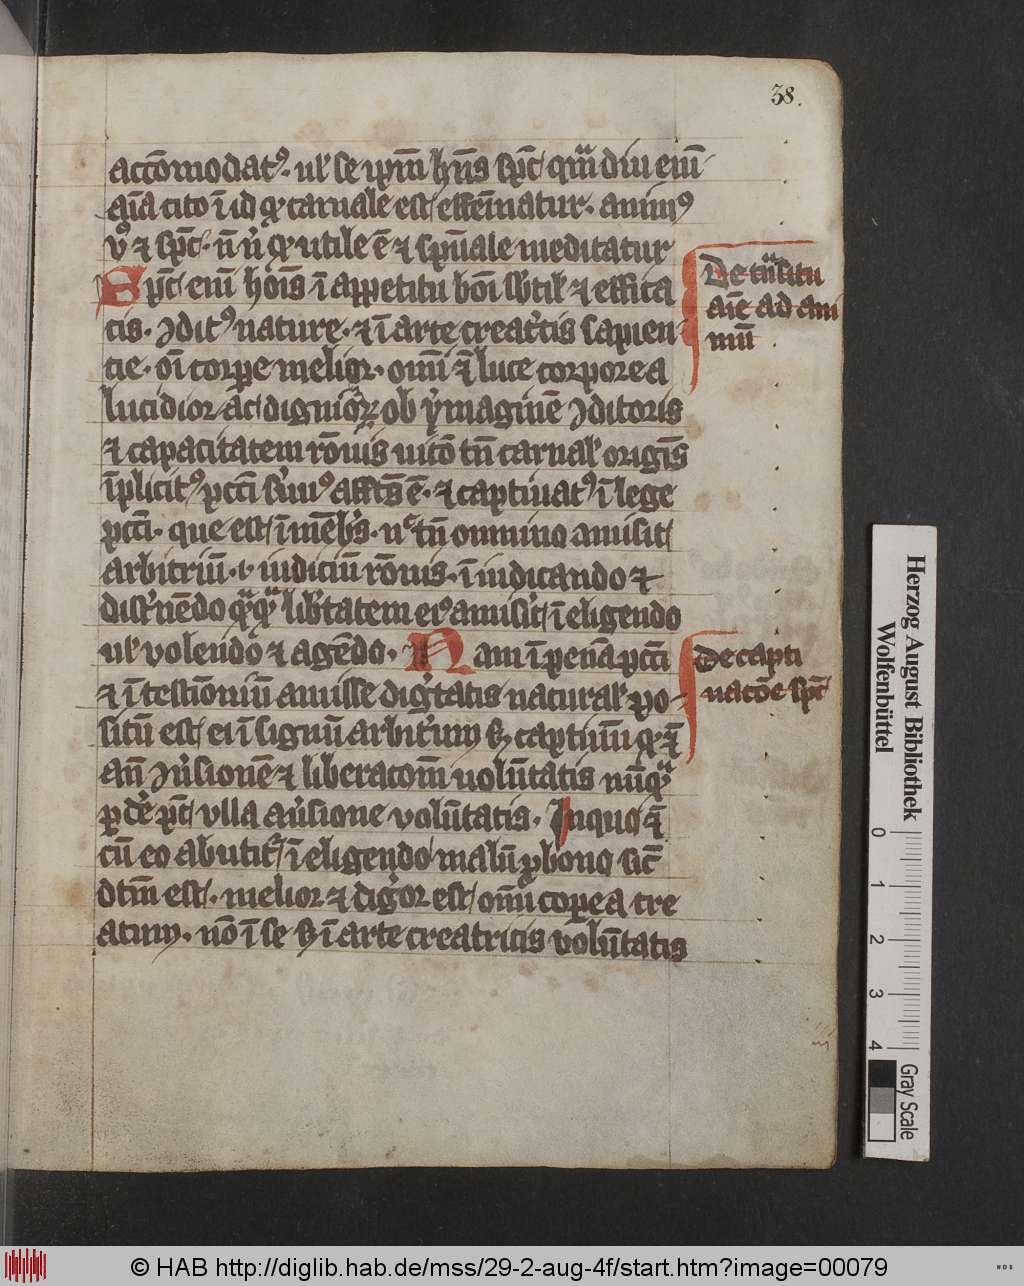 38.
accōmodatꝰ. ul̕ se ip̄m hn̄s sp̄c qm̄diu eni᷒
aīa cito ī id qđ carnale est effeīnatur. animꝰ
v̊ ⁊ sp̄c. n̄ n̄ qđ utile ē ⁊ sp̄uale meditatur
Sp̄c eni᷒ hoīs ī appetitu boī sb̕til̕ ⁊ effica
cis. ꝯditꝰ nature. ⁊ ī arte creat̕cis sapien
cie. oī corpe melior. omī q̄ luce corporea
lucidior ac̄ dignior ob ymaginē ꝯditoris
⁊ capacitatem rōnis uitō tn̄ carnal̕ origīs
īplicitꝰ pcc̄i s̕uuꝰ affc̄s ē. ⁊ captiuatꝰ ī lege
pcc̄i. que est ī mēbs̕. nc̄ tn̄ omnino amisit
arbitriū. i. iudiciū rōnis. ī iudicando ⁊
dis̕nēdo qͣqͣ lib̕tatem eiꝰ amis̕it ī eligendo
ul̕ volendo ⁊ agēdo. Nam ī pena pcc̄i
⁊ ī testīoniū amisse dig̕tatis natural̕ po
situ᷒ est ei ī signū arbit̕um sꝫ captiuū qđ q̄
an̄ ꝯu̕sionē ⁊ liberacōm̄ volūtatis nūqͣ
pde̕ p̄t vlla au̕sione volūtatis. Inquo q̄
cū eo abutit̕ ī eligendo malū p bono sic̄
dtm̄ est. melior ⁊ dig̕or est omī copea cre
atura. nō ī se sꝫ ī arte creatricis volūtatis
De tn̄situ
aīe ad ani
mū
De capti
uacōe sp̄c
Herzog August Bibliothek
Wolfenbüttel
0 1 2 3 4
Gray Scale
© HAB http://diglib.hab.de/mss/29-2-aug-4f/start.htm?image=00079
WDB